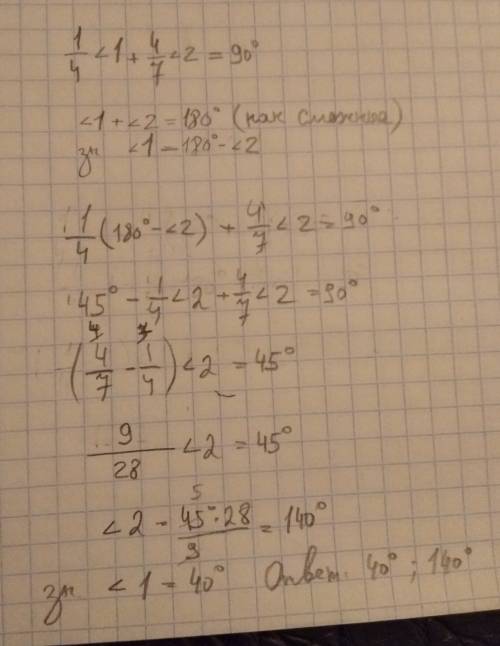 1/4 <1 + 4/7 <2 = 90°
<1 + <2 = 180° (как смежные)
зн <1 = 180° - <2
1/4 (180° - <2) + 4/7 <2 = 90°
45° - 1/4 <2 + 4/7 <2 = 90°
4 7
(4/7 - 1/4) <2 = 45°
9/28 <2 = 45°
5
<2 = 45°·28/9 = 140°
зн <1 = 40° Ответ. 40° ; 140°